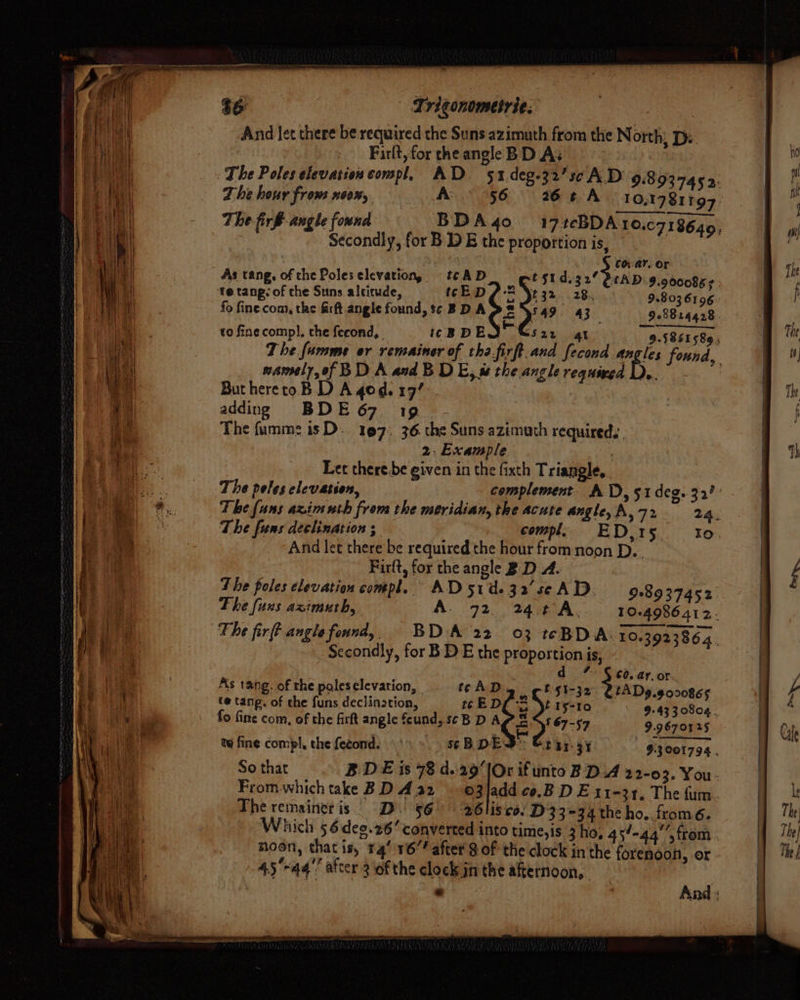 86 Trigonometrie.
And let there be required the Suns azimuth from the North, D.
Firſt, for the angle BD A:
The Poles elevation compl. AD 51 deg. 32′ sc AD 9.8937452.
The hour from noon, A 56 26 t A 10,1781197
The firſt angle found BDA 40 17 tcBDA 10.0718649,
Secondly, for B D E the proportion is,
co. ar. or
As tang. of the Poles elevation, tc AD t 51 d. 32′ tAD 9.9000865
to tang. of the Suns altitude, tc ED t 32 28. 9.8036196
ſo ſine com. the firſt angle found, sc B D A s 49 43 9.8814428
to ſine compl. the ſecond, sc B D E s 22 41 9.5861589;
The ſumme or remainer of the firſt and ſecond angles found,
namely, of B D A and B D E, is the angle required D.
But here to B D A 40 d. 17′
adding BDE 67 19
The ſumme is D. 107. 36. the Suns azimuth required.
2. Example
Let there be given in the ſixth Triangle,
The poles elevation, complement A D, 51 deg. 32′
The ſuns azimuth from the meridian, the acute angle, A, 72 24.
The ſuns declination; compl. ED, 15 10.
And let there be required the hour from noon D.
Firſt, for the angle B D A.
The poles elevation compl. AD 51 d. 32′ sc AD 9.8937452
The ſuns azimuth, A. 72 24 t A. 10.4986412.
The firſt angle found, BDA 22 03 tcBDA 10.3923864.
Secondly, for B D E the proportion is,
d ′ co. ar. or
As tang. of the poles elevation, tc AD t 51-32 tAD 9.9000865
to tang. of the ſuns declination, tc ED t 15-10 9.4330804.
ſo ſine com. of the firſt angle found, sc B D A s 67-57 9.9670125
to ſine compl. the ſecond. sc B DE s 11 31 9.3001794.
So that B.D.E is 78 d. 29′ | Or if unto B D A 22-03. You
From which take B D A 22 03 | add co. B D E 11-31. The ſum
The remainer is D 56 26 | is co. D 33-34 the ho. from 6.
Which 56 deg. 26′ converted into time, is 3 ho. 45′-44″, from
noon, that is, 14′ 16″ after 8 of the clock in the forenoon, or
45′-44″ after 3 of the clock in the afternoon.
And